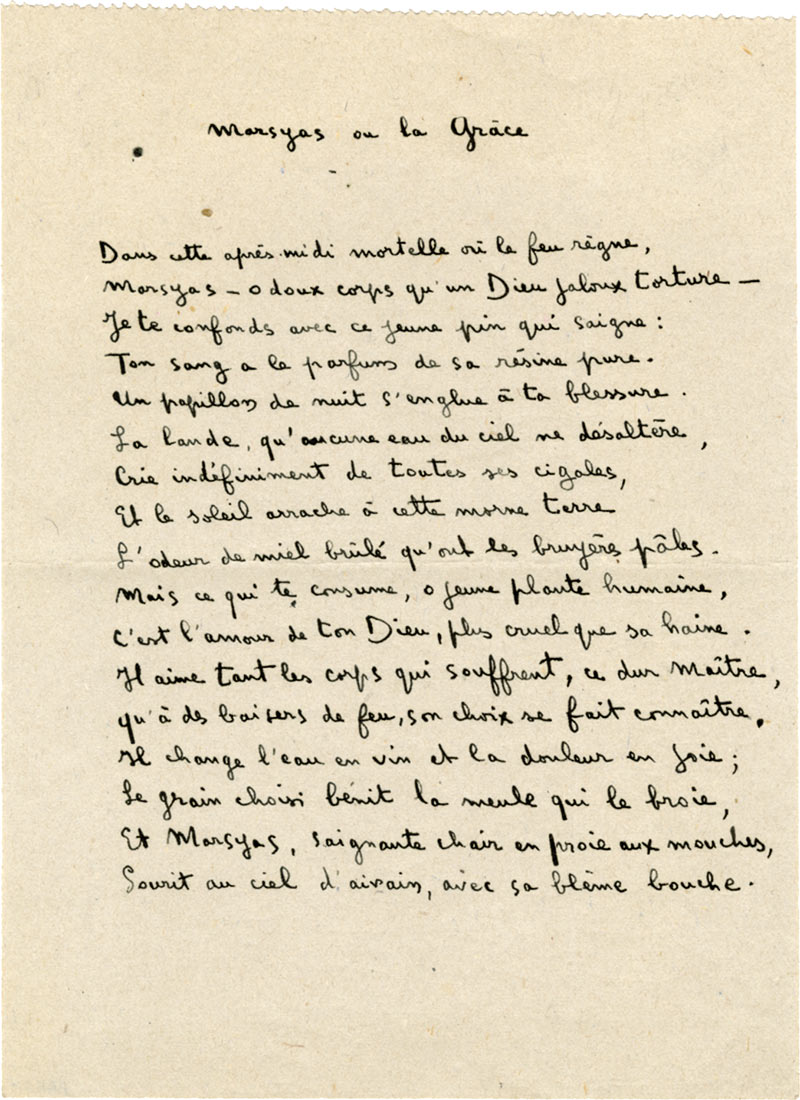 Marsyas ou la Grâce
Dans cette après-midi mortelle où le feu règne,
Marsyas – o doux corps qu'un Dieu jaloux torture –
Je te confonds avec ce jeune pin qui saigne :
Ton sang a le parfum de sa résine pure.
Un papillon de nuit s'englue à ta blessure.
La lande, qu'aucune eau du ciel ne désaltère,
Crie indéfiniment de toutes ses cigales,
Et le soleil arrache à cette morne terre
L'odeur de miel brûlé qu'ont les bruyères pâles.
Mais ce qui te consume, o jeune plante humaine,
C'est l'amour de ton Dieu, plus cruel que sa haine.
Il aime tant les corps qui souffrent, ce dur Maître,
qu'à des baisers de feu, son choix se fait connaître.
Il change l'eau en vin et la douleur en joie ;
Le grain choisi bénit la meule qui le broie,
Et Marsyas, saignante chair en proie aux mouches,
Sourit au ciel d'airain, avec sa blême bouche.